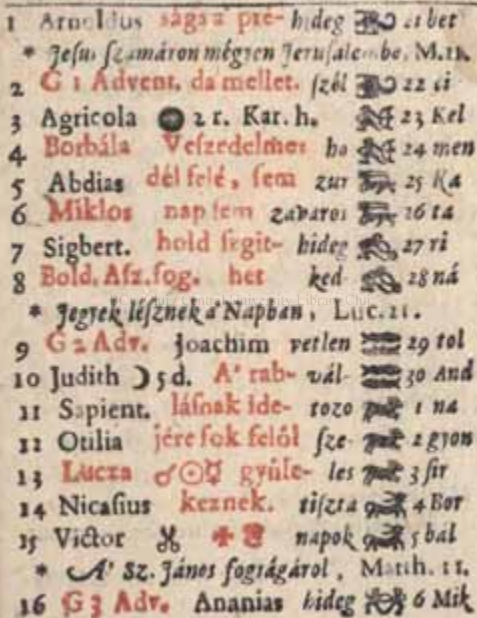 1 Arnoldus ságs a pre- hideg 21 bet
* Jesus szamáron mégyen Jerusalembe, M.21.
2 G 1 Advent. da mellet. szél 22 ti
3 Agricola ● 2 r. Kar. h. 23 Kel
4 Borbála Veszedelmes ho 24 men
5 Abdias dél felé, sem zur 25 Ka
6 Miklos nap sem zavaros 26 ta
7 Sigbert. hold segit- hideg 27 ri
8 Bold. Asz. fog. het ked- 28 ná
* Jegyek lésznek a' Napban, Luc. 21.
9 G 2 Adv. Joachim vetlen 29 tol
10 Judith ☽ 5 d. A' rab- vál- 30 And
11 Sapient. lásnak ide- tozo 1 na
12 Otilia jére sok felöl sze- 2 gyon
13 Lucza ♂☉☿ gyüle- les 3 sir
14 Nicasius keznek. tiszta 4 Bor
15 Victor napok 5 bál
* A' Sz. János fogságárol, Matth. 11.
16 G 3 Adv. Ananias hideg 6 Mik